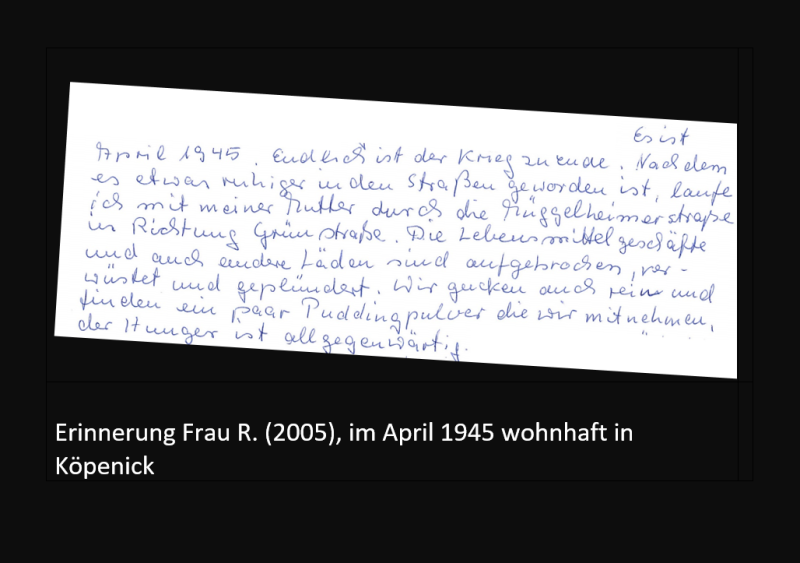 Es ist
April 1945. Endlich ist der Krieg zu ende. Nachdem
es etwas ruhiger in den Straßen geworden ist, laufe
ich mit meiner Mutter durch die Müggelheimerstraße
in Richtung Grünstraße. Die Lebensmittelgeschäfte
und auch andere Läden sind aufgebrochen, ver-
wüstet und geplündert. Wir gucken auch rein und
finden ein paar Puddingpulver die wir mitnehmen,
der Hunger ist allgegenwärtig.
Erinnerung Frau R. (2005), im April 1945 wohnhaft in
Köpenick